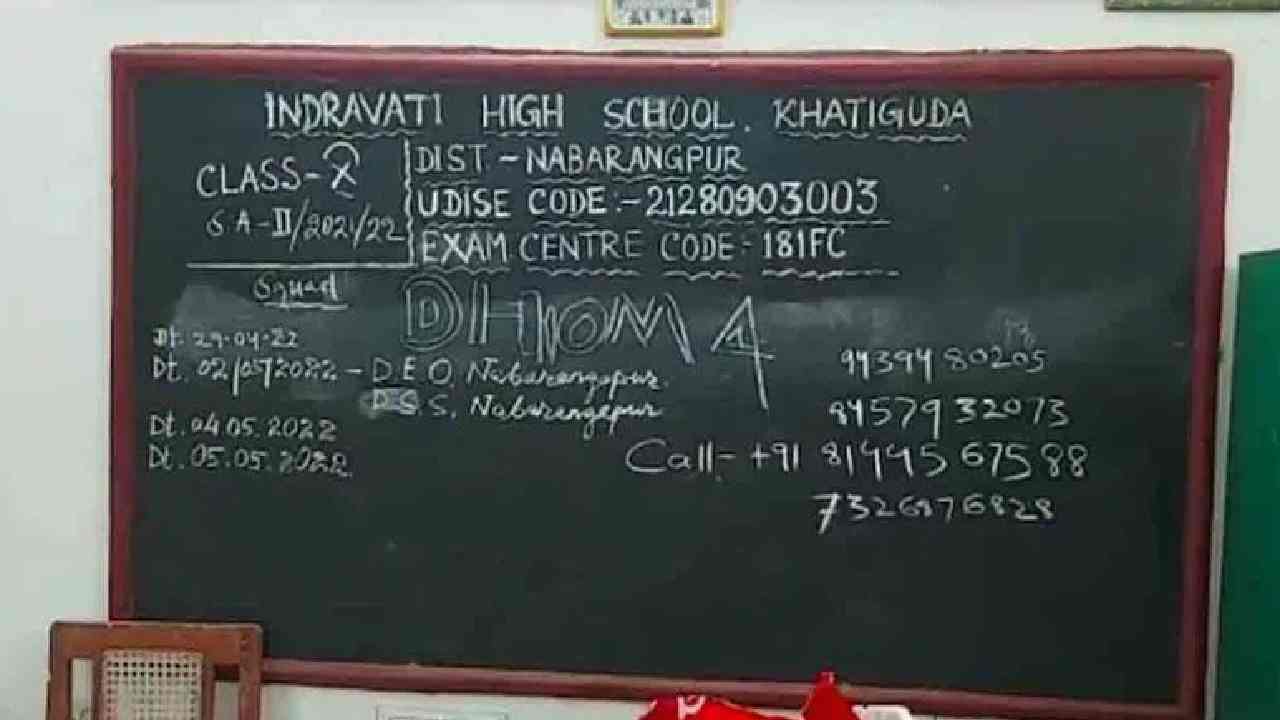 INDRAVATI HIGH SCHOOL. KHATIGUDA
CLASS-X
SA-II/2021/22
DIST - NABARANGPUR
UDISE CODE:- 21280903003
EXAM CENTRE CODE- 181FC
Squad
DHOM 4
Dt. 29-04-22
Dt. 02/05/2022 - D.E.O, Nabarangapur.
D.S.S, Nabarangapur
Dt. 04.05.2022
Dt. 05.05.2022
94394 80205
8457932073
Call:- +91 81445 67588
7326876828